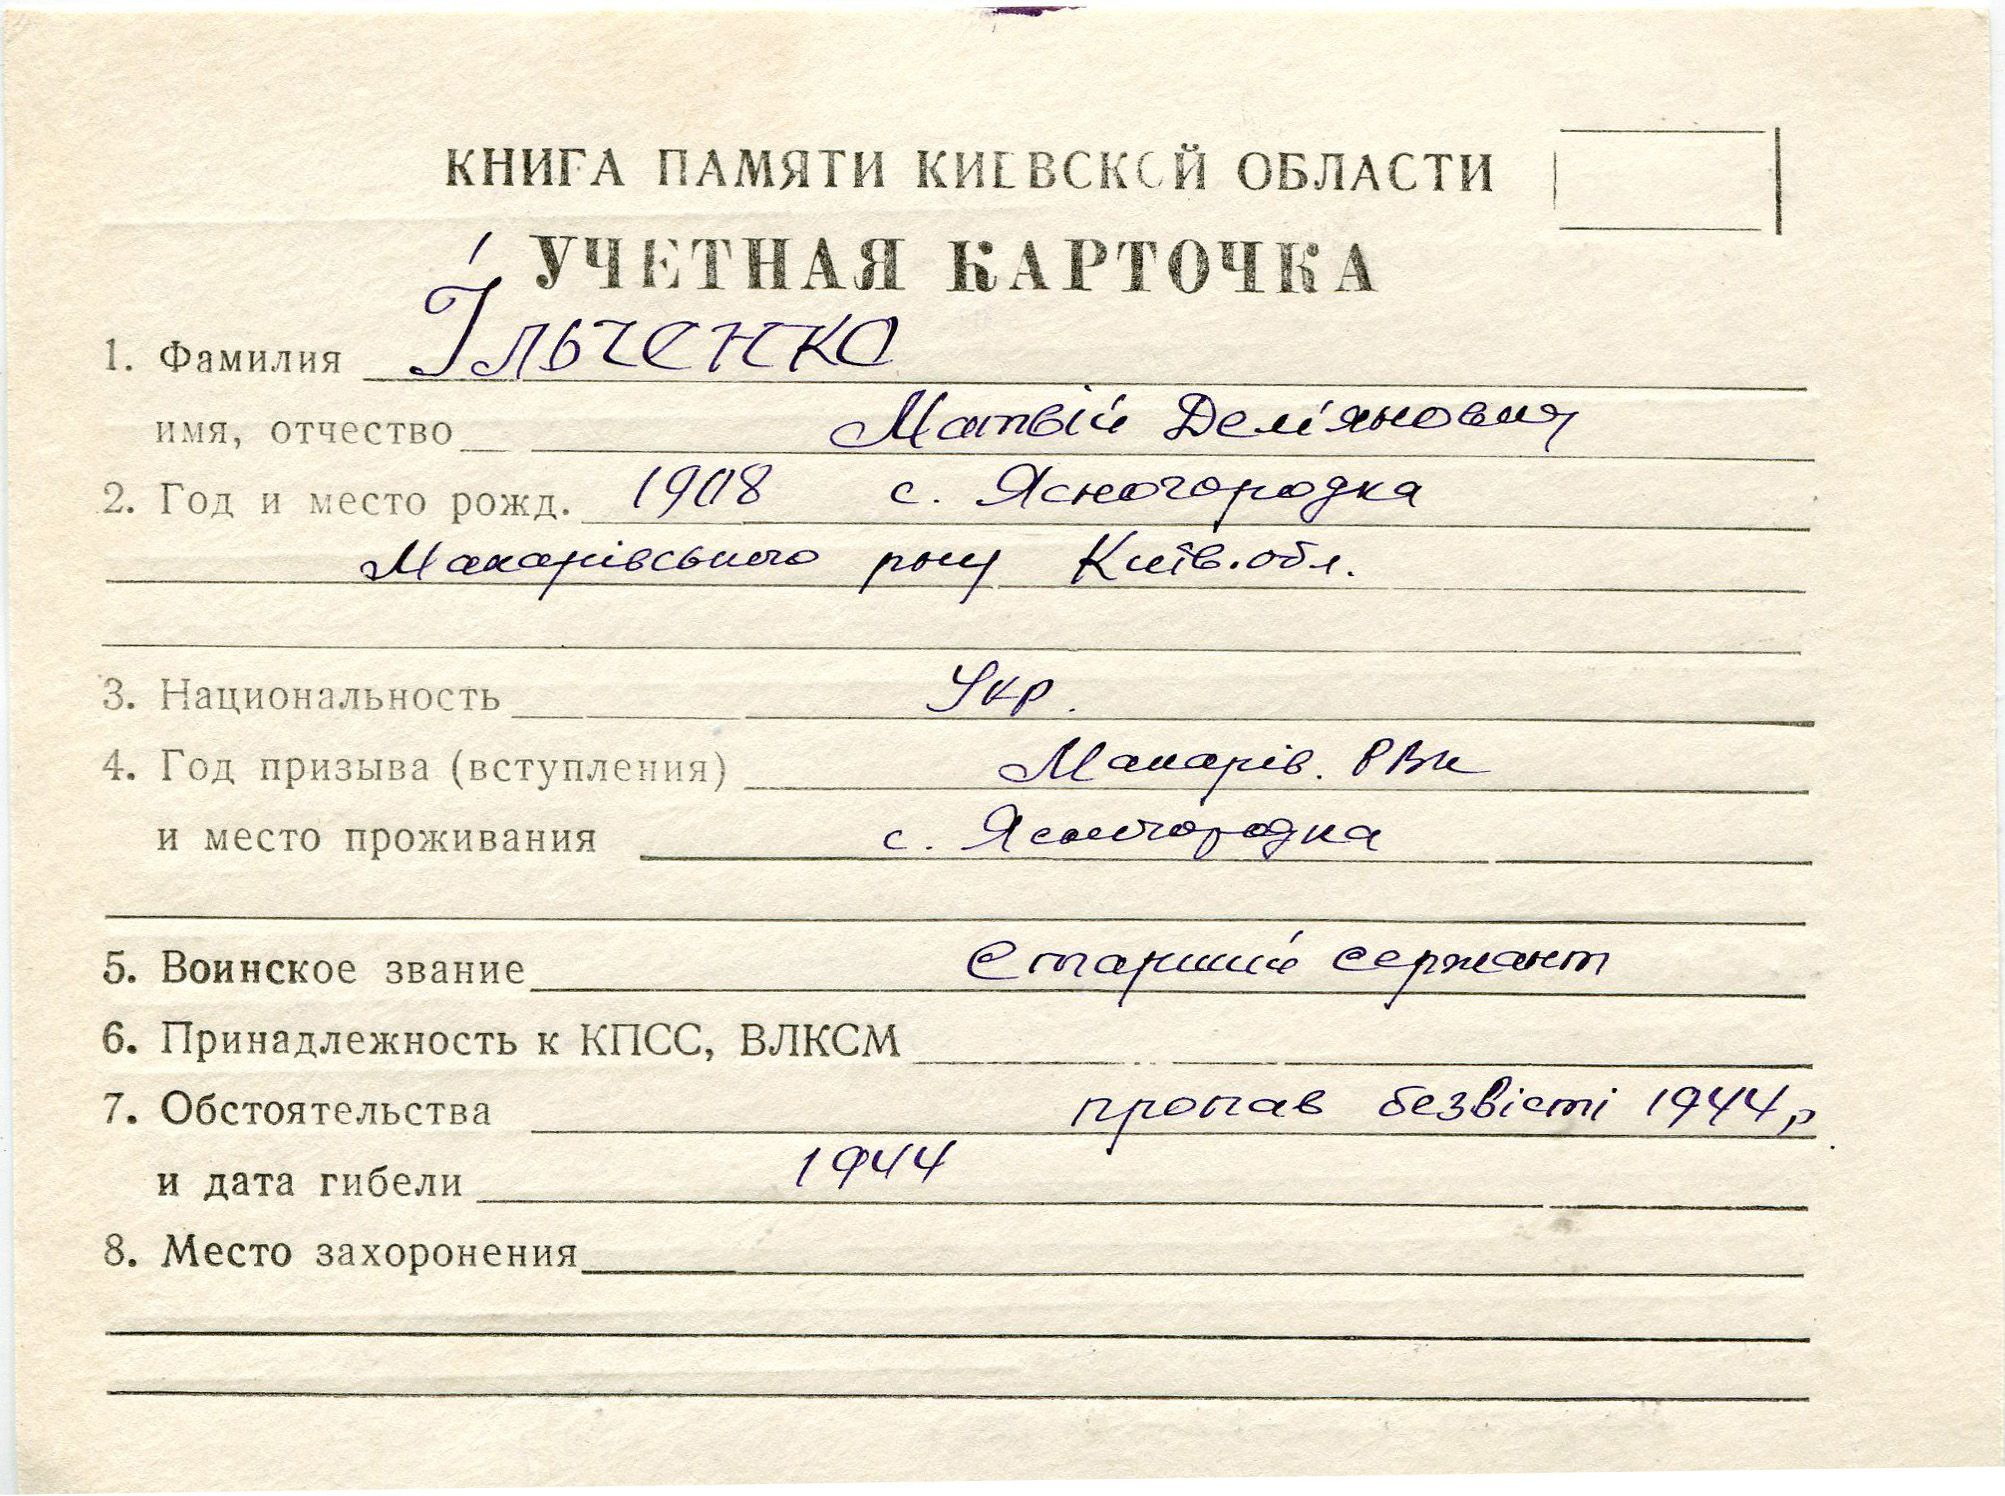 КНИГА ПАМЯТИ КИЕВСКОЙ ОБЛАСТИ
УЧЕТНАЯ КАРТОЧКА
1. Фамилия Ільченко
имя, отчество Матвій Дем'янович
2. Год и место рожд. 1908 с. Ясногородка
Макарівського р-ну Київ. обл.
3. Национальность Укр.
4. Год призыва (вступления) Макарів. РВК
и место проживания с. Ясногородка
5. Воинское звание Старший сержант
6. Принадлежность к КПСС, ВЛКСМ
7. Обстоятельства пропав безвісті 1944 р.
и дата гибели 1944
8. Место захоронения